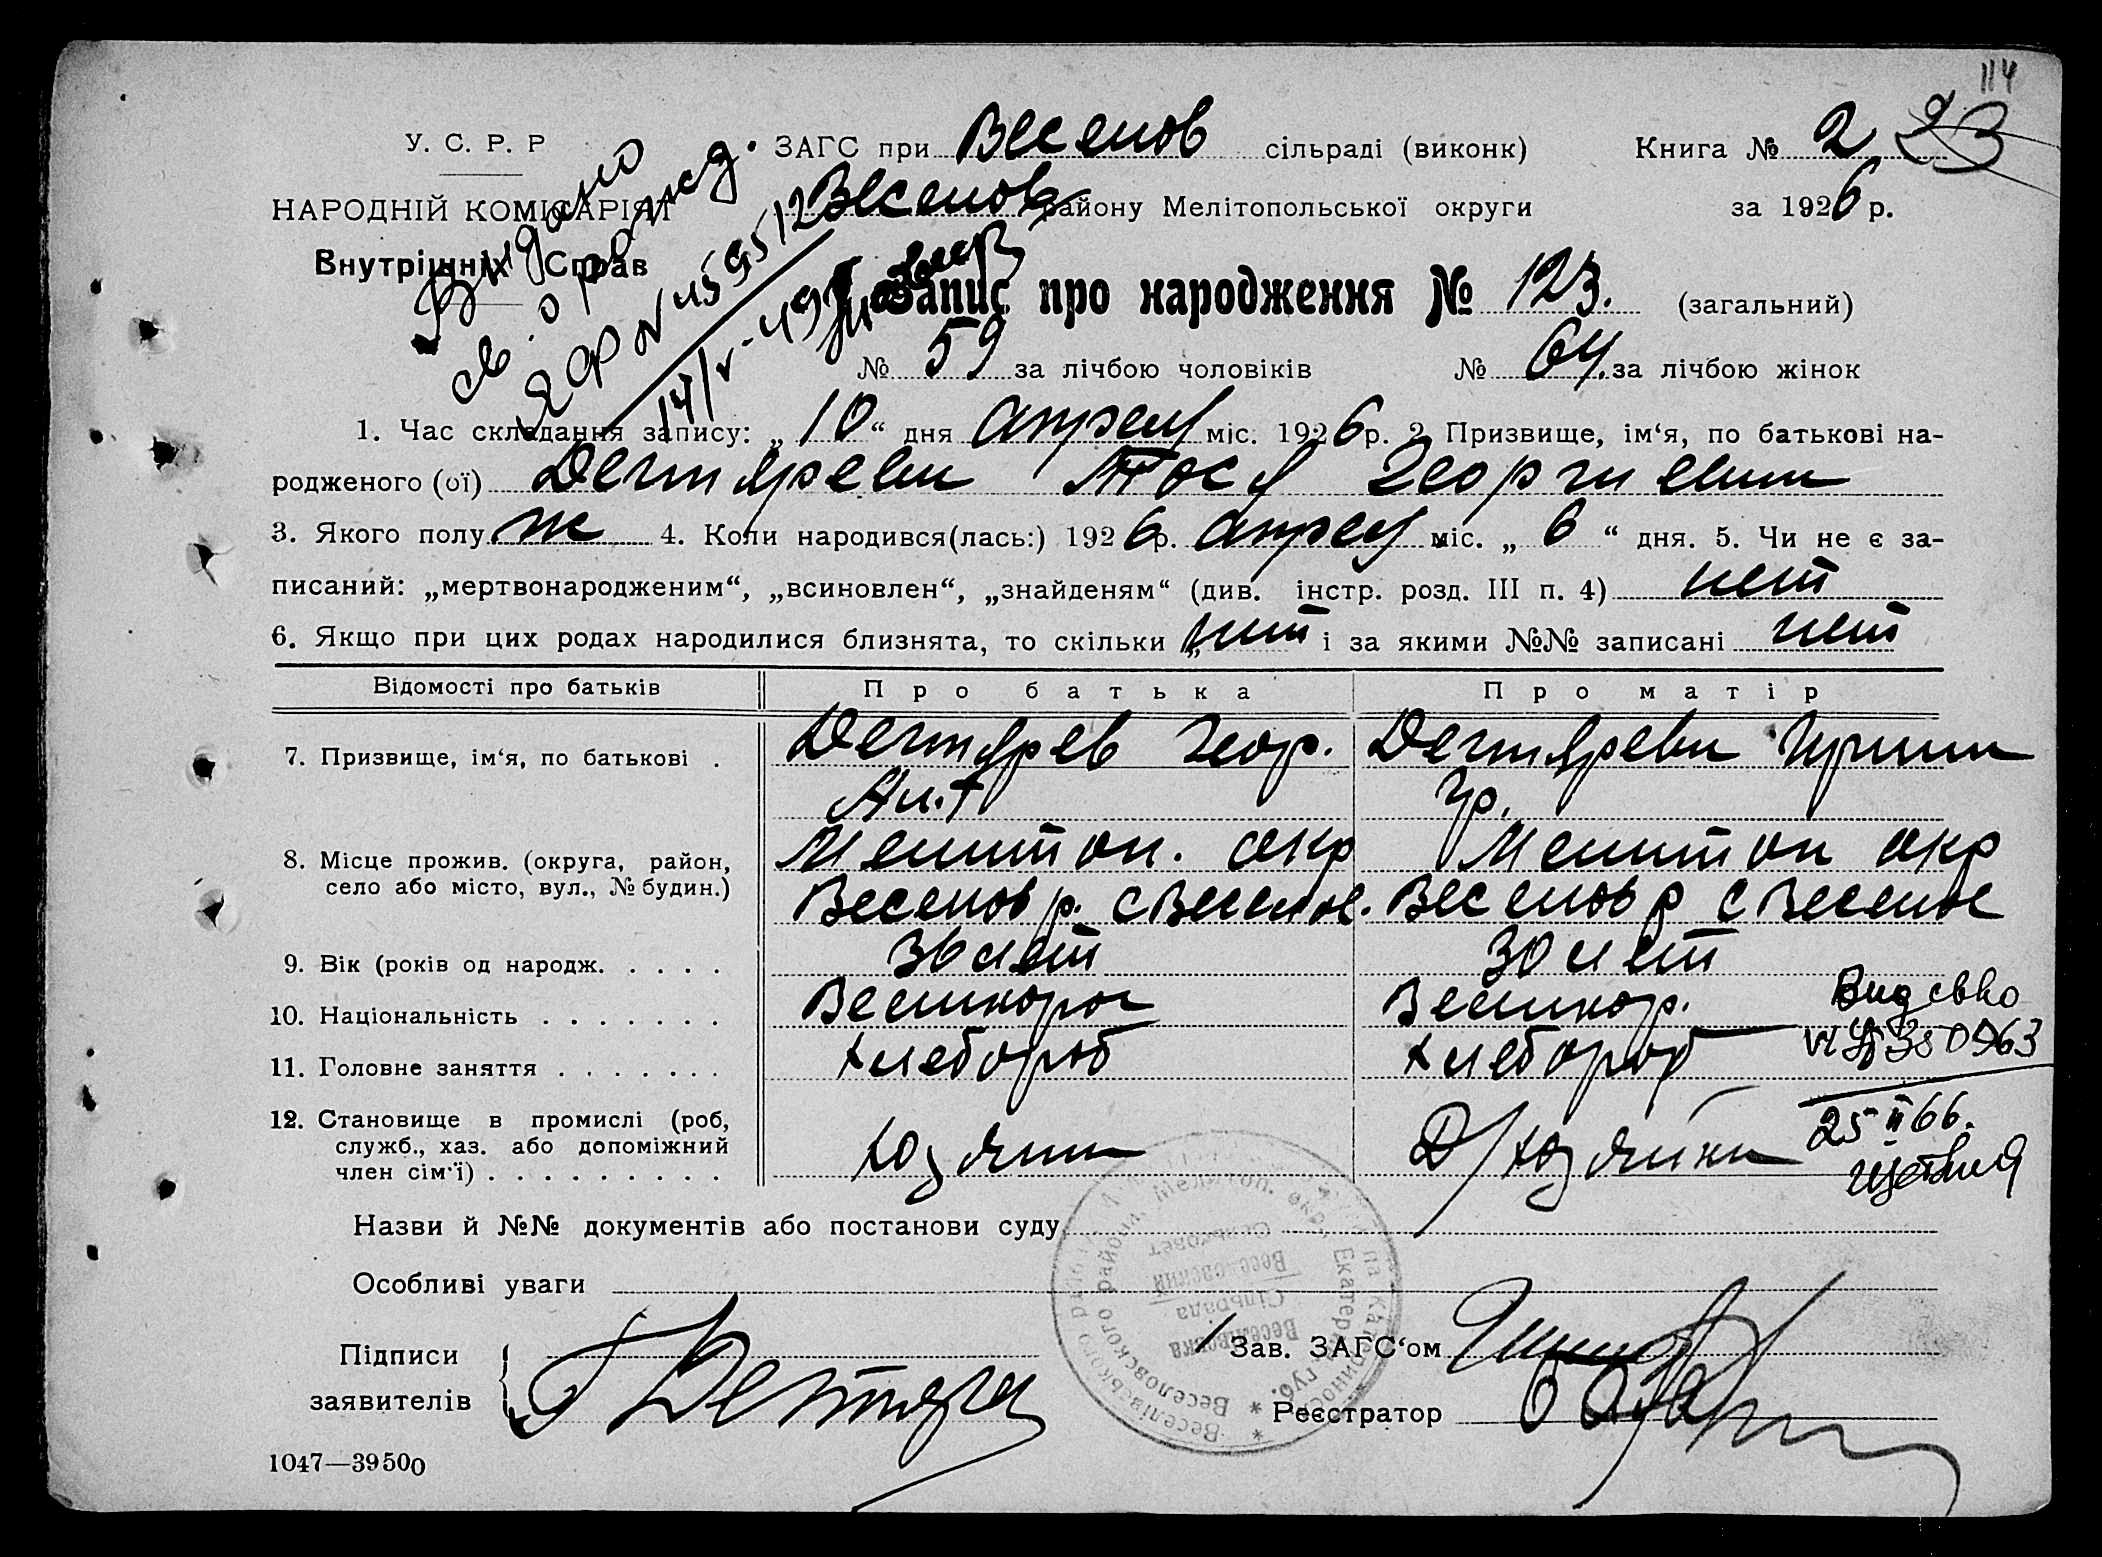 114
У. С. Р. Р
ЗАГС при Веселов сільраді (виконк)
Книга № 2 23
НАРОДНІЙ КОМІСАРІЯТ
Веселов району Мелітопольської округи
за 1926 р.
Внутрішніх Справ
Видано
св. о рожд.
ЯФ № 459512
14/V-49
Запис про народження № 123. (загальний)
№ 59 за лічбою чоловіків № 64. за лічбою жінок
1. Час складання запису: „10“ дня апреля міс. 1926 р. 2. Призвище, ім‘я, по батькові на-
родженого (ої) Дегтярева Тося Георгиевна
3. Якого полу ж 4. Коли народився(лась:) 1926 р. апреля міс. „ 6 “ дня. 5. Чи не є за-
писаний: „мертвонародженим“, „всиновлен“, „знайденям“ (див. інстр. розд. III п. 4) нет
6. Якщо при цих родах народилися близнята, то скільки „ нет і за якими №№ записані нет
Відомості про батьків Про батька Про матір
7. Призвище, ім‘я, по батькові . Дегтярев Геор. Дегтярева Ирина
Ант Гр.
8. Місце прожив. (округа, район, Мелитоп. окр Мелитоп окр
село або місто, вул., № будин.) Веселов р. с Веселов. Веселов р с Веселое
9. Вік (років од народж. . . . . 36 лет 30 лет
10. Національність . . . . . . . Великорос Великор.
Вид св‑во
11. Головне заняття . . . . . . . хлебороб хлебороб
12. Становище в промислі (роб,
служб., хаз. або допоміжний
член сім‘ї) . . . . . . . . . хозяин Д/хозяйка
25 II 66.
Назви й №№ документів або постанови суду
Особливі уваги
Підписи
заявителів
Зав. ЗАГС‘ом
Реєстратор
Веселівська
Сільрада
Веселовский
Сельсовет
1047—39500